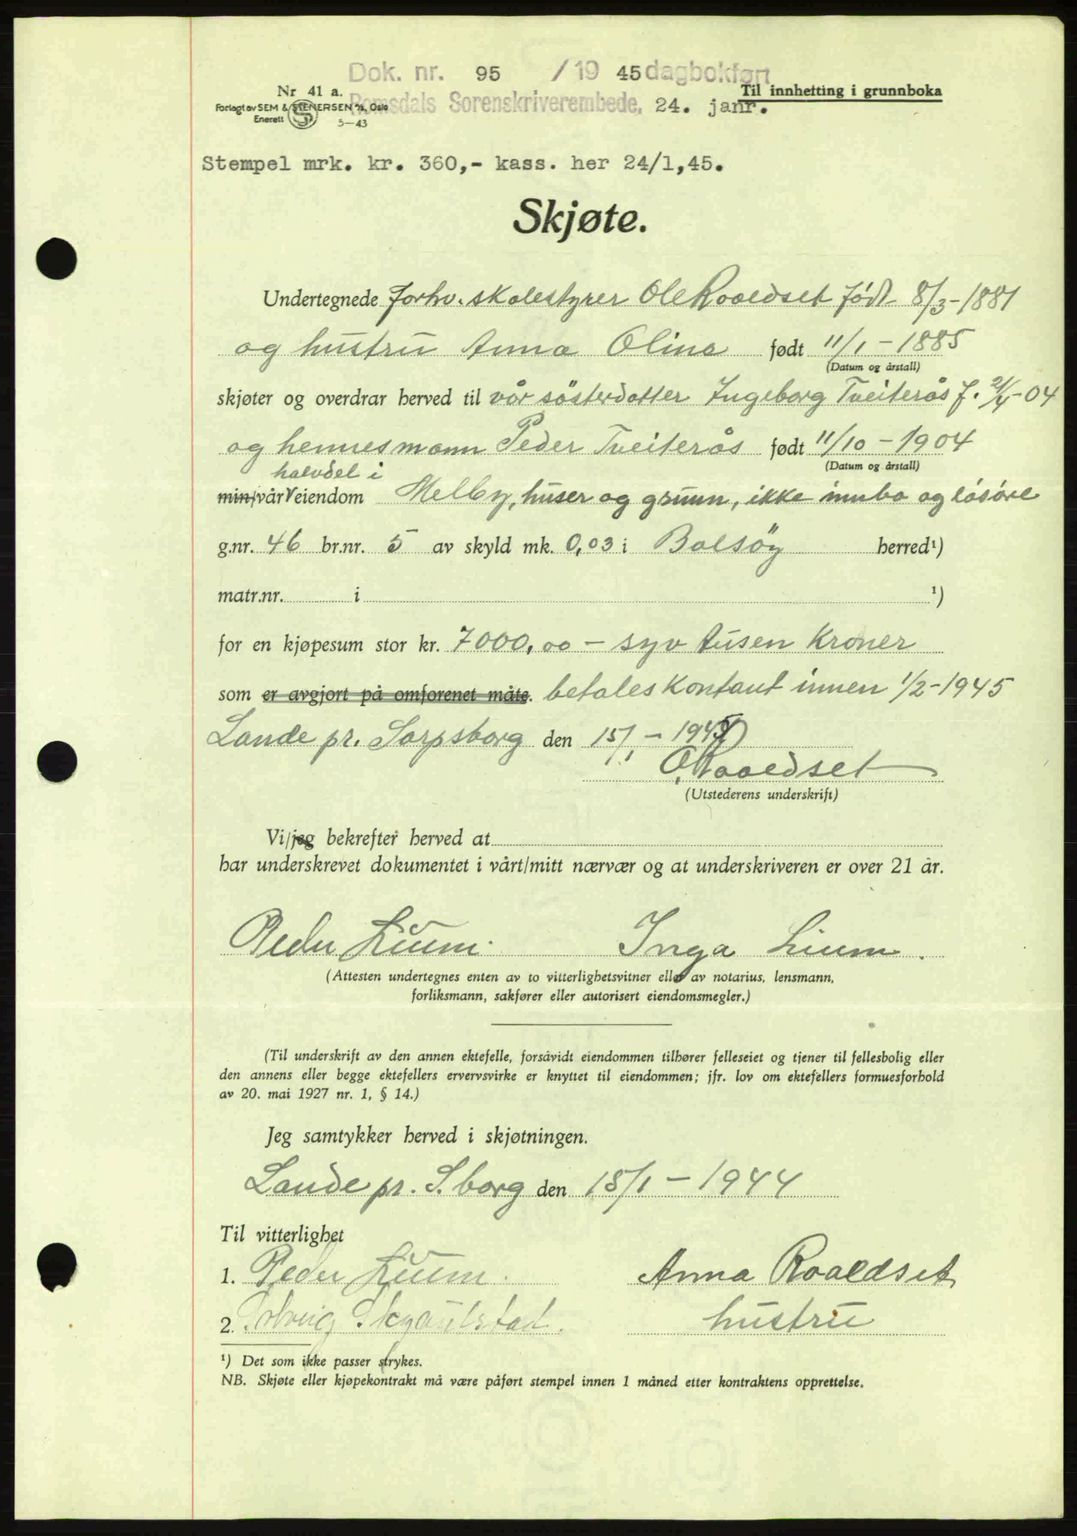 Dok. nr. 95 /19 45 dagbokført
Nr 41 a.
Til innhetting i grunnboka
Forlagt av SEM & STENERSEN A/S, Oslo
Romsdals Sorenskriverembede, 24. janr.
Enerett
5-43
Stempel mrk. kr. 360,- kass. her 24/1,45.
Skjøte.
Undertegnede forhv. skolestyrer Ole Roaldset født 8/3-1881
og hustru Anna Olina født 11/1-1885
(Datum og årstall)
skjøter og overdrar herved til vår søsterdatter Ingeborg Tveiterås f. 21/4-04
og hennes mann Peder Tveiterås født 11/10-1904
(Datum og årstall)
halvdel i
min/vår eiendom Melby, huser og grunn, ikke innbo og løsøre
g.nr. 46 br.nr. 5 av skyld mk. 0,03 i Bolsöy herred¹)
matr.nr. i ¹)
for en kjøpesum stor kr. 7000,00 - syv tusen kroner
som er avgjort på omforenet måte. betales kontant innen 1/2-1945
Lande pr. Sarpsborg den 15/1-1945
O. Roaldset
(Utstederens underskrift)
Vi/jeg bekrefter herved at
har underskrevet dokumentet i vårt/mitt nærvær og at underskriveren er over 21 år.
Peder Lium. Inga Lium.
(Attesten undertegnes enten av to vitterlighetsvitner eller av notarius, lensmann,
forliksmann, sakfører eller autorisert eiendomsmegler.)
(Til underskrift av den annen ektefelle, forsåvidt eiendommen tilhører felleseiet og tjener til fellesbolig eller
den annens eller begge ektefellers ervervsvirke er knyttet til eiendommen; jfr. lov om ektefellers formuesforhold
av 20. mai 1927 nr. 1, § 14.)
Jeg samtykker herved i skjøtningen.
Lande pr. S.borg den 15/1-1944
Til vitterlighet
1. Peder Lium. Anna Roaldset
2. hustru
¹) Det som ikke passer strykes.
NB. Skjøte eller kjøpekontrakt må være påført stempel innen 1 måned etter kontraktens opprettelse.